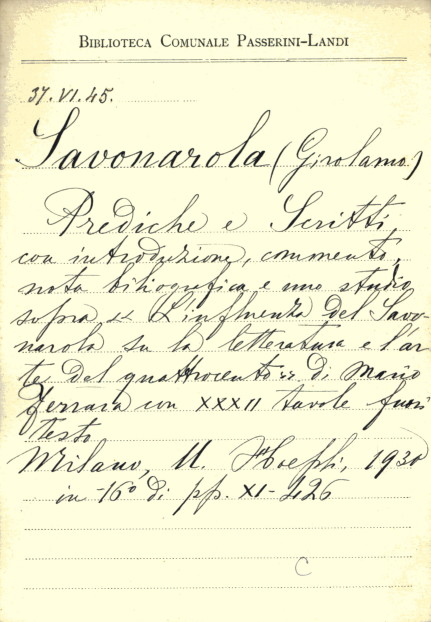 BIBLIOTECA COMUNALE PASSERINI-LANDI
37.VI.45.
Savonarola (Girolamo)
Prediche e Scritti,
con introduzione, commento,
nota bibliografica e uno studio
sopra « L'influenza del Savo-
narola su la letteratura e l'ar-
te del quattrocento » di Mario
Ferrara con XXXII tavole fuori
testo
Milano, U. Hoepli, 1930
in-16° di pp. XI-426
C